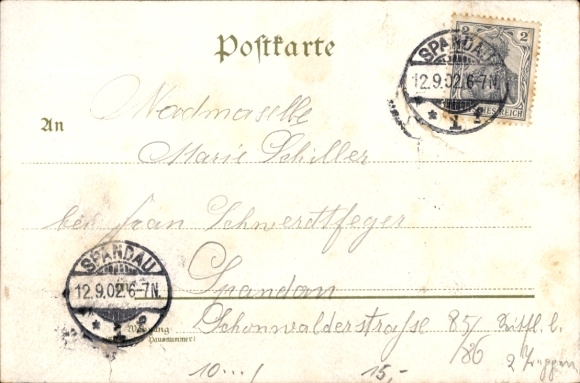 Postkarte
2 2
REICH
SPANDAU
12.9.02.6-7N.
* 1
An
Madmaselle
Marie Schiller
bei Frau Schwerdtfeger
Spandau
Schönwalderstraße 85/86
SPANDAU
12.9.02.6-7N.
Wohnung
(Hausnummer)
10... / 15,-